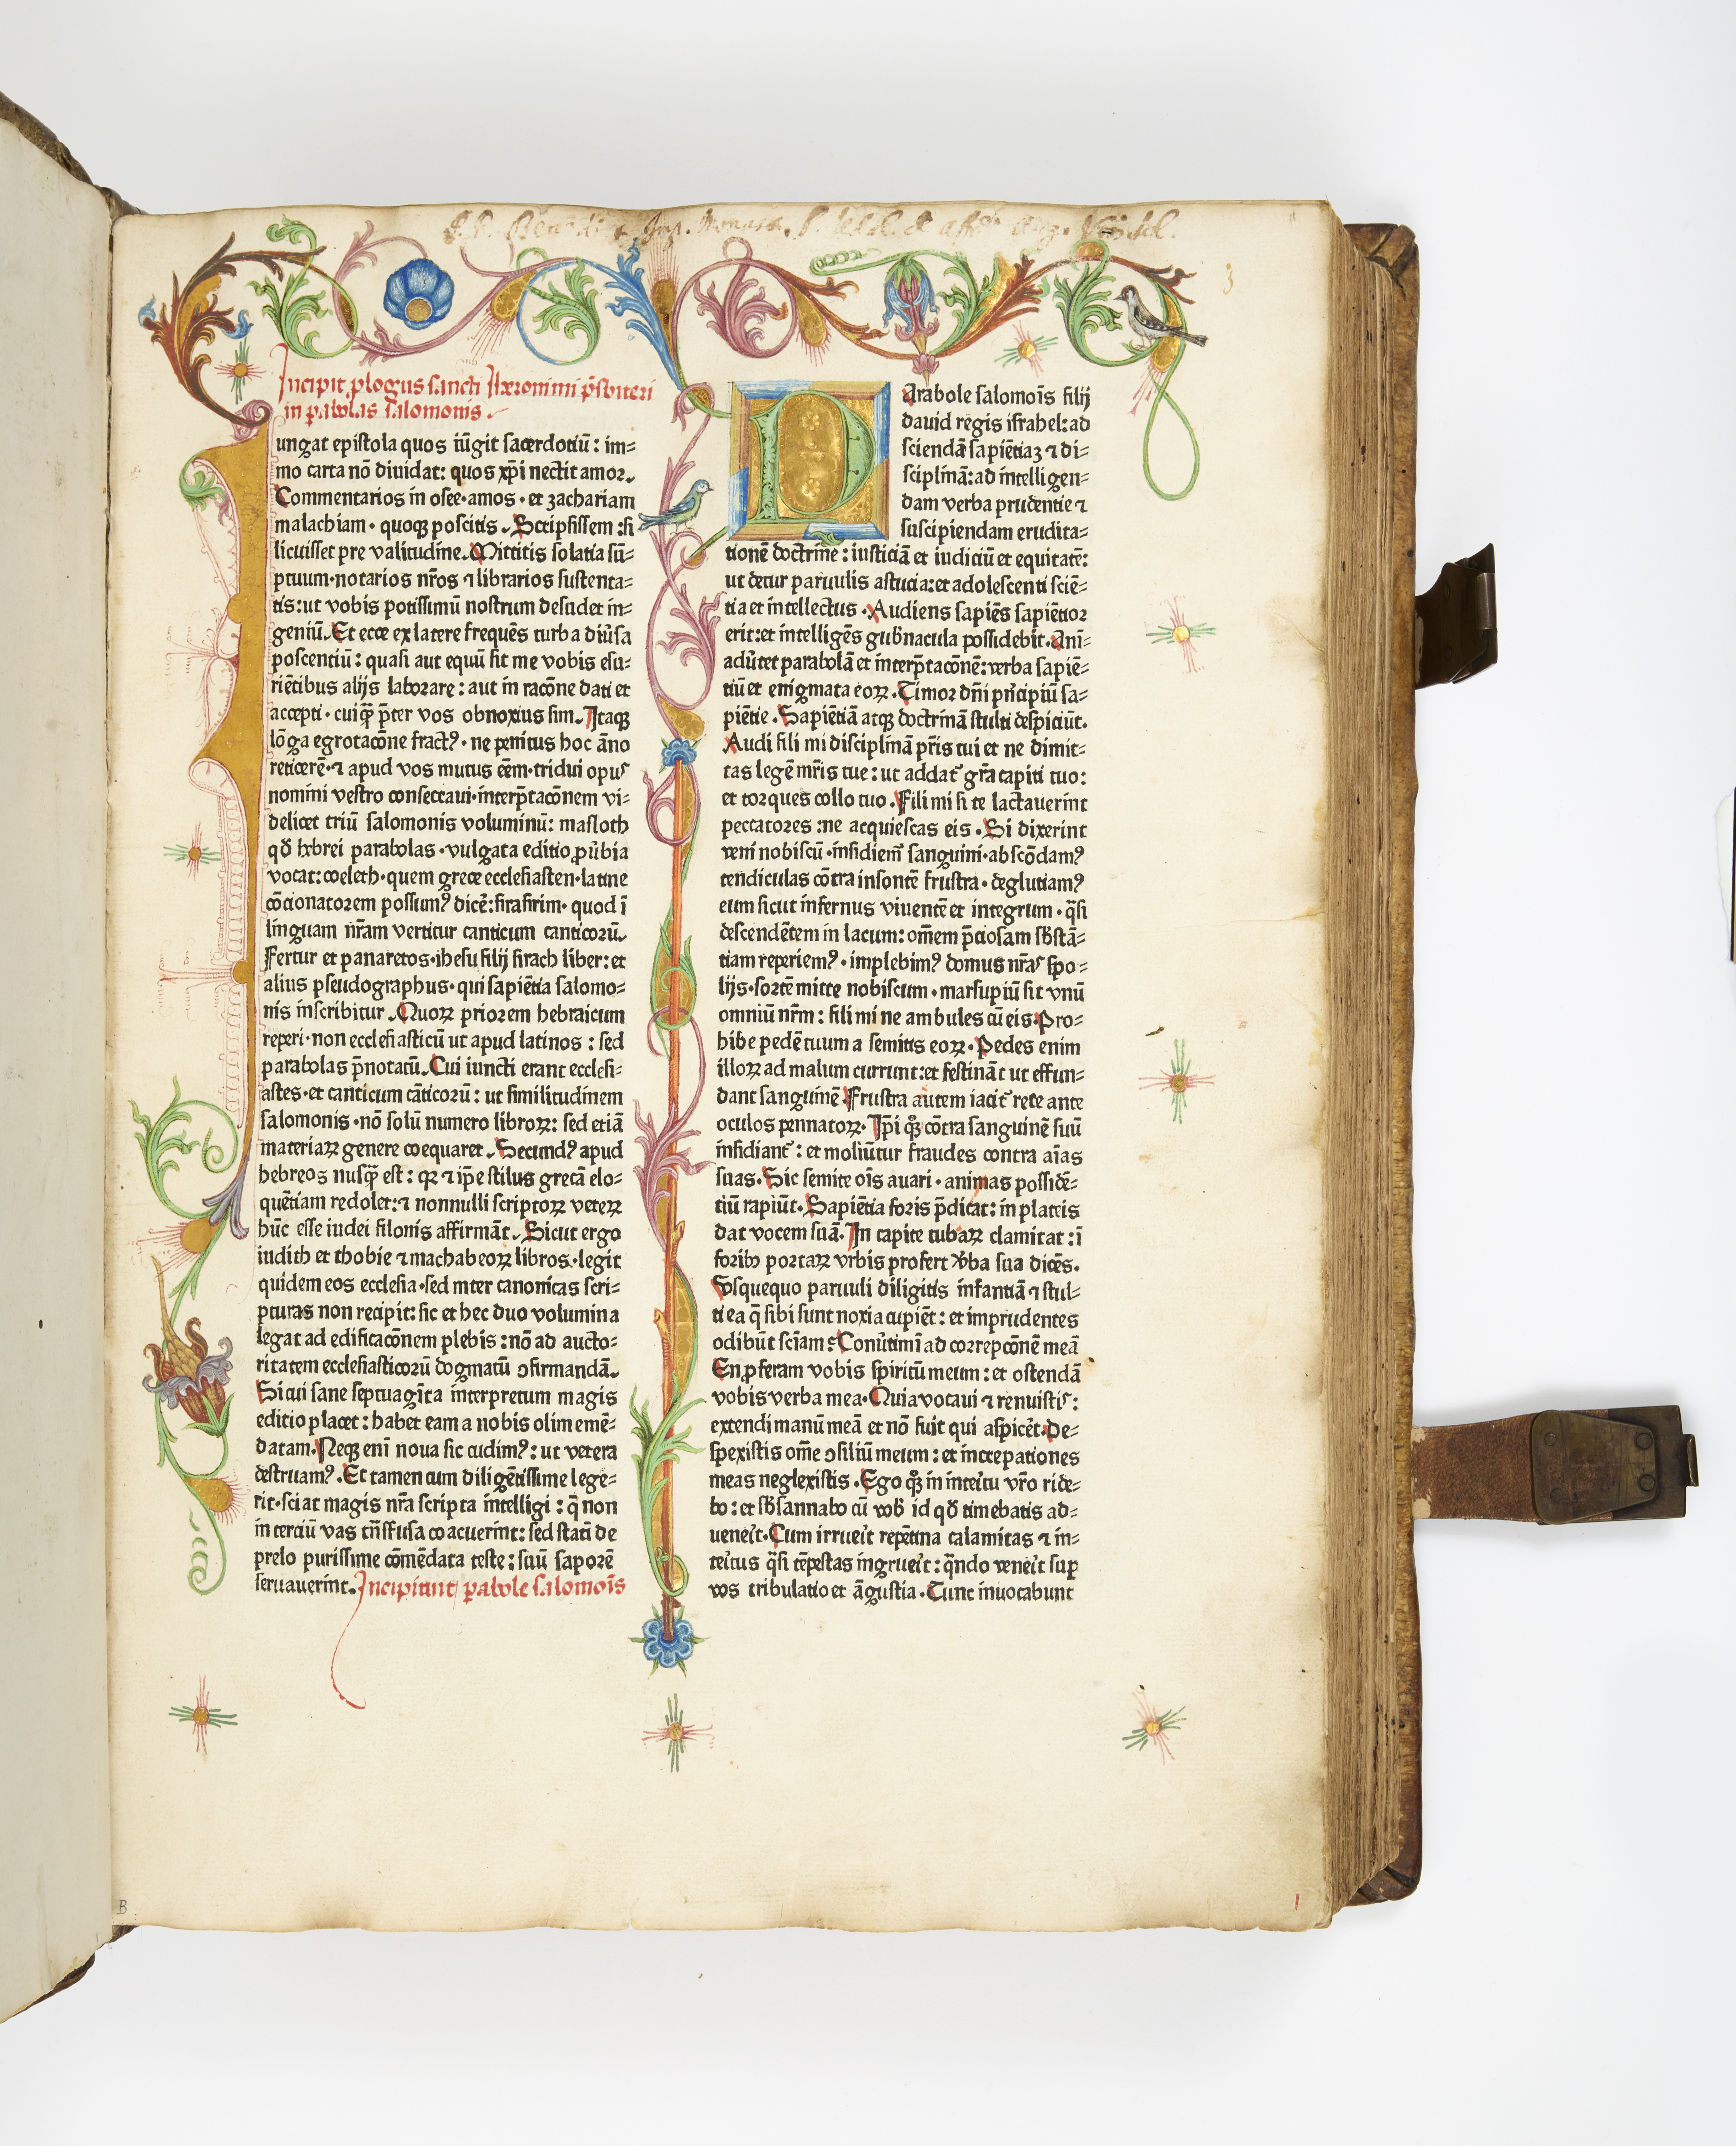 Incipit plogus sancti Iheronimi p̄sbiteri
in pabolas salomonis
ungat epistola quos iūgit sacerdotiū: im=
mo carta nō diuidat: quos xp̄i nectit amor.
Commentarios in osee·amos·et zachariam
malachiam·quoqꝫ poscitis. Scripsissem:si
licuisset pre valitudine. Mittitis solatia sū=
ptuum·notarios nr̄os ⁊ librarios sustenta=
tis:ut vobis potissimū nostrum desudet in=
geniū. Et ecce ex latere frequēs turba diūsa
poscentiū: quasi aut equū sit me vobis esu=
riētibus alijs laborare: aut in racōne dati et
accepti·cuiq̄ȝ p̄ter vos obnoxius sim. Itaqꝫ
lōga egrotacōne fractꝰ·ne penitus hoc āno
reticerē·⁊ apud vos mutus eēm·tridui opuˢ
nomini vestro consecraui·interp̄tacōnem vi=
delicet triū salomonis voluminū: masloth
qd̄ hebrei parabolas·vulgata editio ꝓūbia
vocat:coeleth·quem grece ecclesiasten·latine
cōcionatorem possumꝰ dicē:sirasirim·quod ī
linguam nr̄am vertitur canticum canticorū.
Fertur et panaretos·ihesu filij sirach liber: et
alius pseudographus·qui sapiētia salomo=
nis inscribitur. Quoꝝ priorem hebraicum
reperi·non ecclesiasticū ut apud latinos: sed
parabolas p̄notatū. Cui iuncti erant ecclesi=
astes·et canticum cāticorū: ut similitudinem
salomonis·nō solū numero libroꝝ: sed etiā
materiaꝝ genere coequaret. Secundꝰ apud
hebreos nusq̄ȝ est: qꝛ ⁊ ip̄e stilus grecā elo=
quētiam redolet:⁊ nonnulli scriptoꝝ veteꝝ
hūc esse iudei filonis affirmāt. Sicut ergo
iudith et thobie ⁊ machabeoꝝ libros·legit
quidem eos ecclesia·sed inter canonicas scri=
pturas non recipit: sic et hec duo volumina
legat ad edificacōnem plebis: nō ad aucto=
ritatem ecclesiasticorū dogmatū ↄfirmandā.
Si cui sane septuagīta interpretum magis
editio placet: habet eam a nobis olim emē=
datam. Neqꝫ enī noua sic cudimꝰ: ut vetera
destruamꝰ. Et tamen cum diligētissime lege=
rit·sciat magis nr̄a scripta intelligi: q̄ non
in terciū vas trāsfusa coacuerint: sed statī de
prelo purissime cōmēdata teste: suū saporē
seruauerint. Incipiunt pabole salomoīs
Arabole salomoīs filij
dauid regis israhel:ad
sciendā sapiētiaȝ ⁊ di=
sciplinā:ad intelligen=
dam verba prudentie ⁊
suscipiendam erudita=
tionē doctrine: iusticiā et iudiciū et equitatē:
ut detur paruulis astucia:et adolescenti sciē=
tia et intellectus. Audiens sapiēs sapiētior
erit:et intelligēs gub̄nacula possidebit. Anī=
adūtet parabolā et interp̄tacōnē:verba sapiē=
tiū et enigmata eoꝝ. Timor dn̄i prīcipiū sa=
piētie. Sapiētiā atqꝫ doctrinā stulti despiciūt.
Audi fili mi disciplinā pr̄is tui et ne dimit=
tas legē mr̄is tue: ut addat᷑ gr̄a capiti tuo:
et torques collo tuo. Fili mi si te lactauerint
peccatores:ne acquiescas eis. Si dixerint
veni nobiscū·insidiem᷑ sanguini·abscōdamꝰ
tendiculas cōtra insontē frustra·deglutiamꝰ
eum sicut infernus viuentē et integrum·q̄si
descendētem in lacum: om̄em p̄ciosam sb̄stā=
tiam reperiemꝰ·implebimꝰ domus nr̄aˢ spo=
lijs·sortē mitte nobiscum·marsupiū sit vnū
omniū nr̄m: fili mi ne ambules cū eis. Pro=
hibe pedē tuum a semitis eoꝝ. Pedes enim
illoꝝ ad malum currunt:et festināt ut effun=
dant sanguinē. Frustra autem iacit᷑ rete ante
oculos pennatoꝝ. Ip̄i qͦꝫ cōtra sanguinē suū
insidiant᷑: et moliūtur fraudes contra aīas
suas. Sic semite oīs auari·animas possidē=
tiū rapiūt. Sapiētia foris p̄dicat: in plateis
dat vocem suā. In capite tubaꝝ clamitat: ī
foribꝫ portaꝝ vrbis profert v̄ba sua dicēs.
Vsquequo paruuli diligitis infantiā ⁊ stul=
ti ea q̄ sibi sunt noxia cupiēt: et imprudentes
odibūt sciām? Conūtimī ad correpcōnē meā
En ꝓferam vobis spiritū meum: et ostendā
vobis verba mea. Quia vocaui ⁊ renuistis:
extendi manū meā et nō fuit qui aspicēt. De=
spexistis om̄e ↄsiliū meum: et increpationes
meas neglexistis. Ego qͦꝫ in inteīitu vr̄o ride=
bo: et sb̄sannabo cū vob̄ id qd̄ timebatis ad=
ueneīt. Cum irrueīt repētina calamitas ⁊ in=
teītus q̄si tēpestas ingrueīt: q̄ndo veneīt suꝑ
vos tribulatio et āgustia. Tunc inuocabunt
B